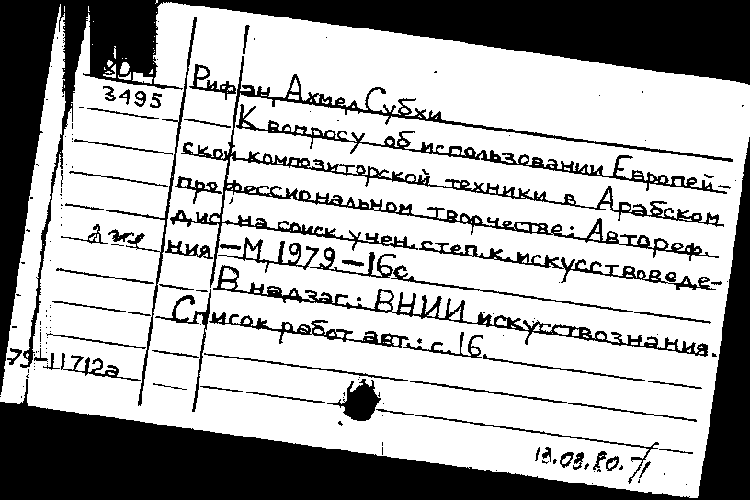 3495
Рифэн, Ахмед Субхи
К вопросу об использовании Европей-
ской композиторской техники в Арабском
профессиональном творчестве: Автореф.
дис. на соиск. учен. степ. к. искусствоведе-
ния. — М, 1979. — 16с.
2 же
В надзаг.: ВНИИ искусствознания.
Список работ авт.: с. 16.
79-11712а
13.03.80.